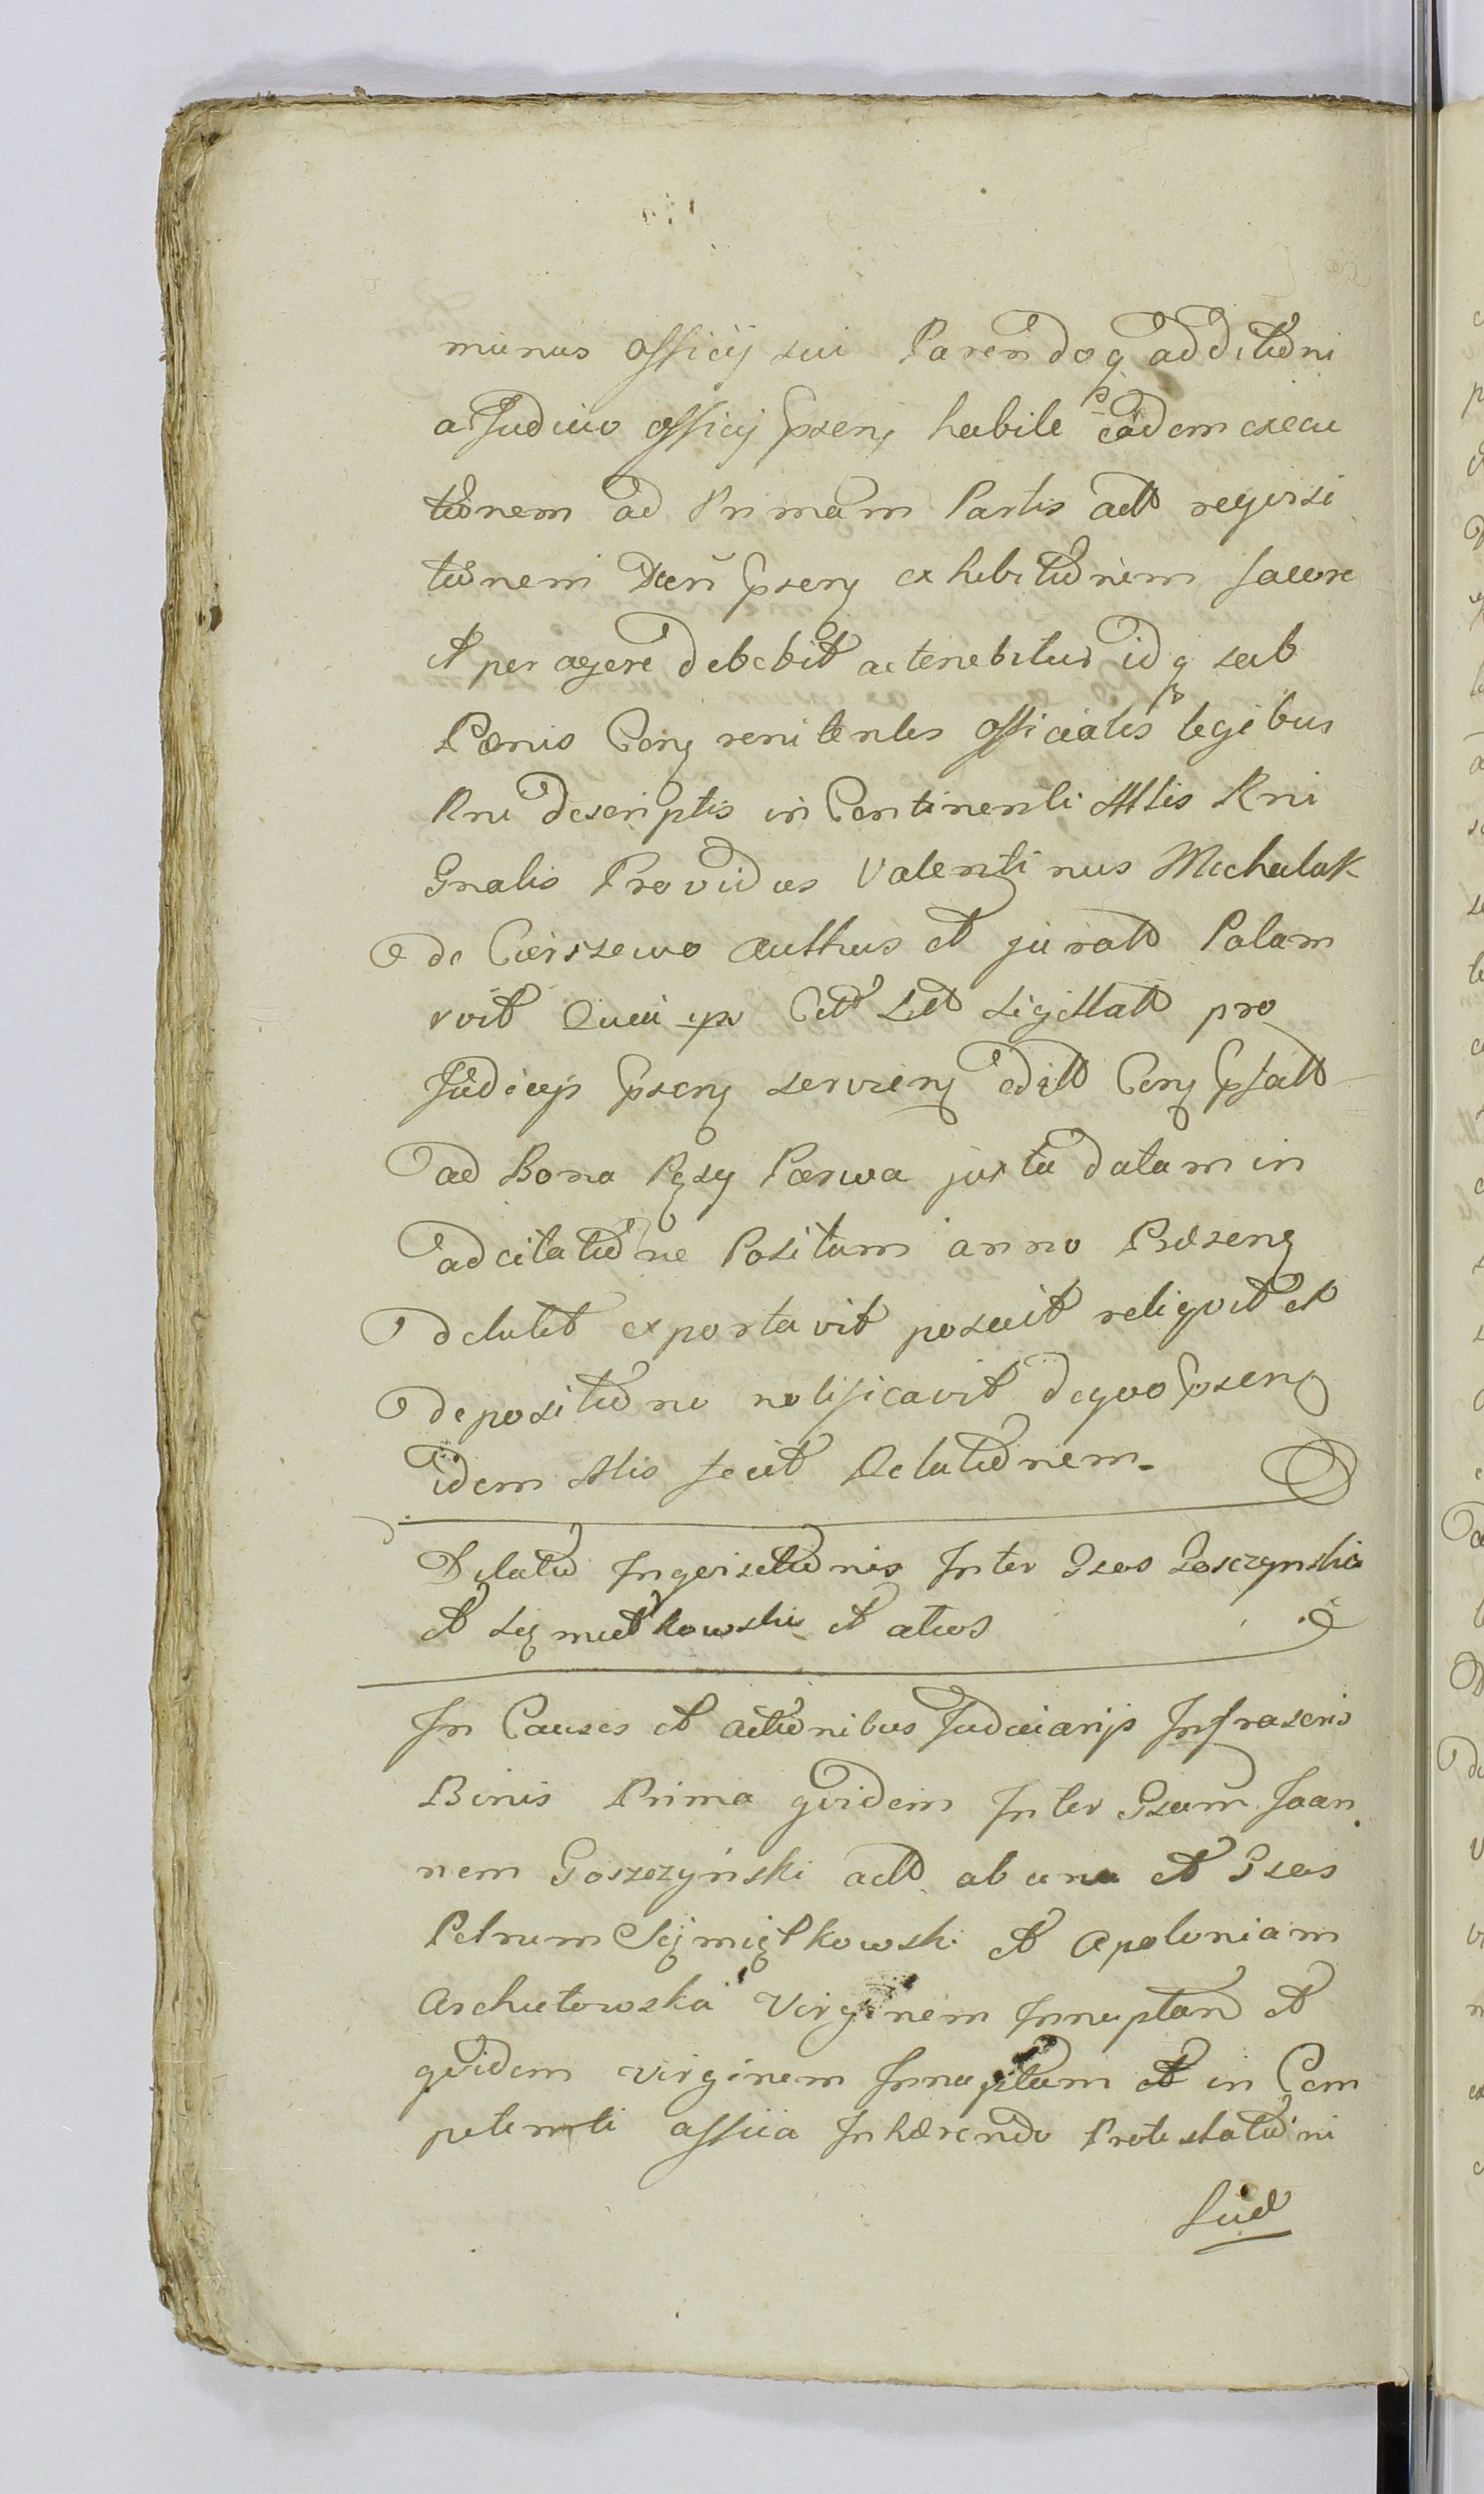 munus officij sui Parendoq additioni
a Judicio officij psenj habile eadem execu
tionem ad Primam Partis actt reqvisi
tionem psenj exhibitionem facere
et peragere debebit ac tenebitur idq sub
Pœnis Conj renitentes officiales legibus
Rni descriptis in Continenti Mtlis Rni
Gnalis Providus Valentinus Michalak
de Cierszewo authus et juratt Palam
rvit Qvia ipse Citt Litt sigillatt pro
Judicijs psenj servienj editt Conj psatt
ad Bona Pęsy Parwa juxta datam in
adcitatione Positam anno Præsenj
detulit exportavit posuit reliqvit et
depositione notificavit deqvo psenj
idem Mtlis fecit Relationem.
Dilatio Inqvisitionis Inter Gsos Goszczynski
et Sęmiętkowski et alios
In Causis et actionibus Judiciarijs Infrascris
Binis Prima qvidem Inter Gsum Joan
nem Goszczyński actt ab una et Gsos
Petrum Sęjmiętkowski et Apoloniam
Archutowska Virginem Innuptam et
qvidem virginem Innuptam et in Com
petenti assiia Inhærendo Protestationi
Jud